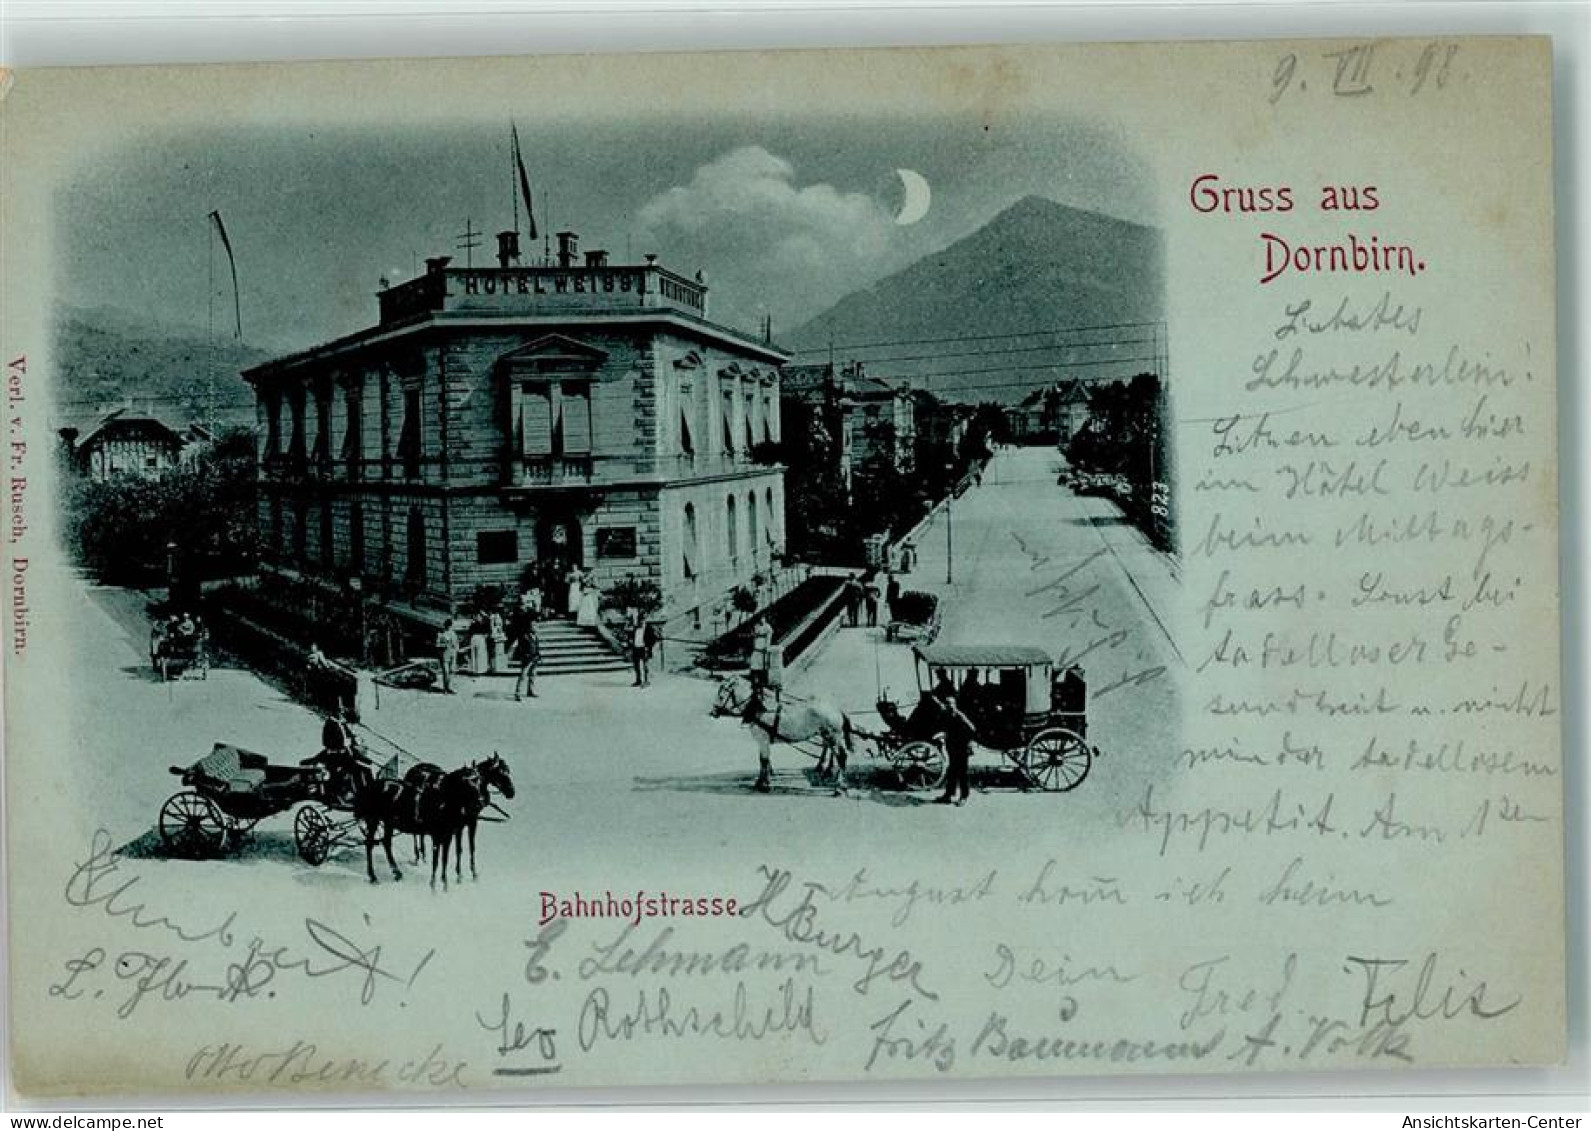 9. VII. 98.
Gruss aus
Dornbirn.
HOTEL WEISS
Liebstes
Schwesterlein!
Sitzen eben hier
im Hôtel Weiss
beim Mittags-
frass. Sonst bei
tadelloser Ge-
sundheit u. nicht
minder tadellosem
Appetit. Am 1ten
August kom̄ ich heim
Dein
Fred.
823
Verl. v. Fr. Rusch, Dornbirn.
Bahnhofstrasse.
H. Burger
E. Lehmann
Leo Rothschild
Felix
Fritz Baumann A. Volk
Otto Benecke
www.delcampe.net
Ansichtskarten-Center